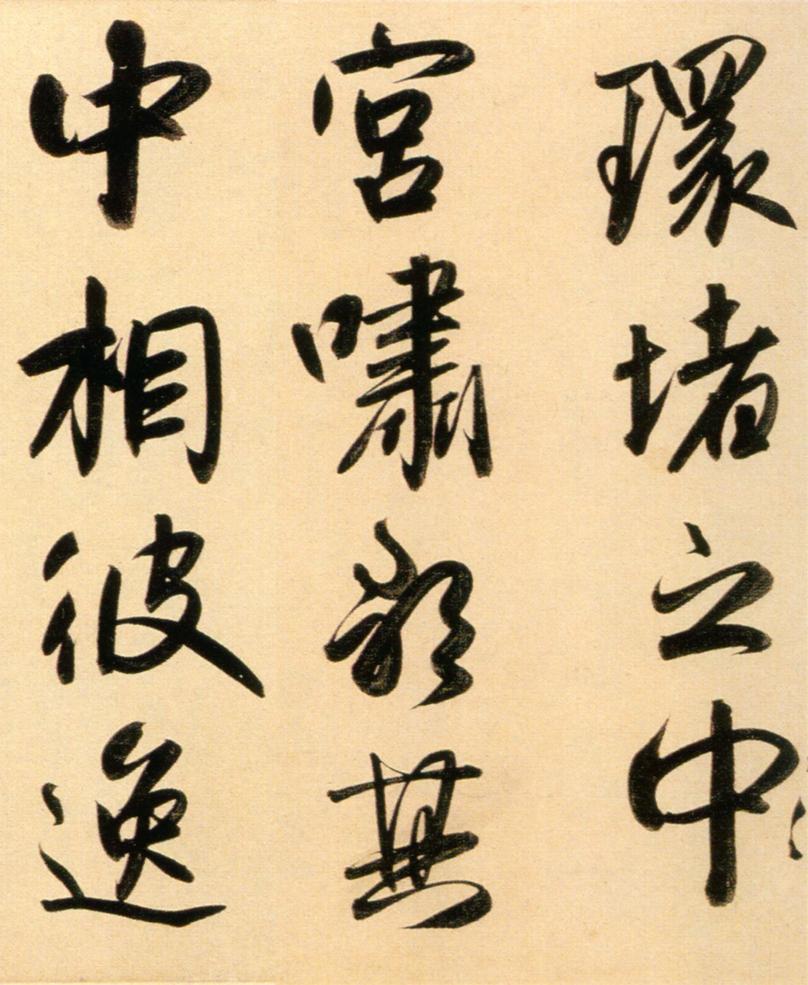 環堵之中
宮嘯歌其
中相彼逸